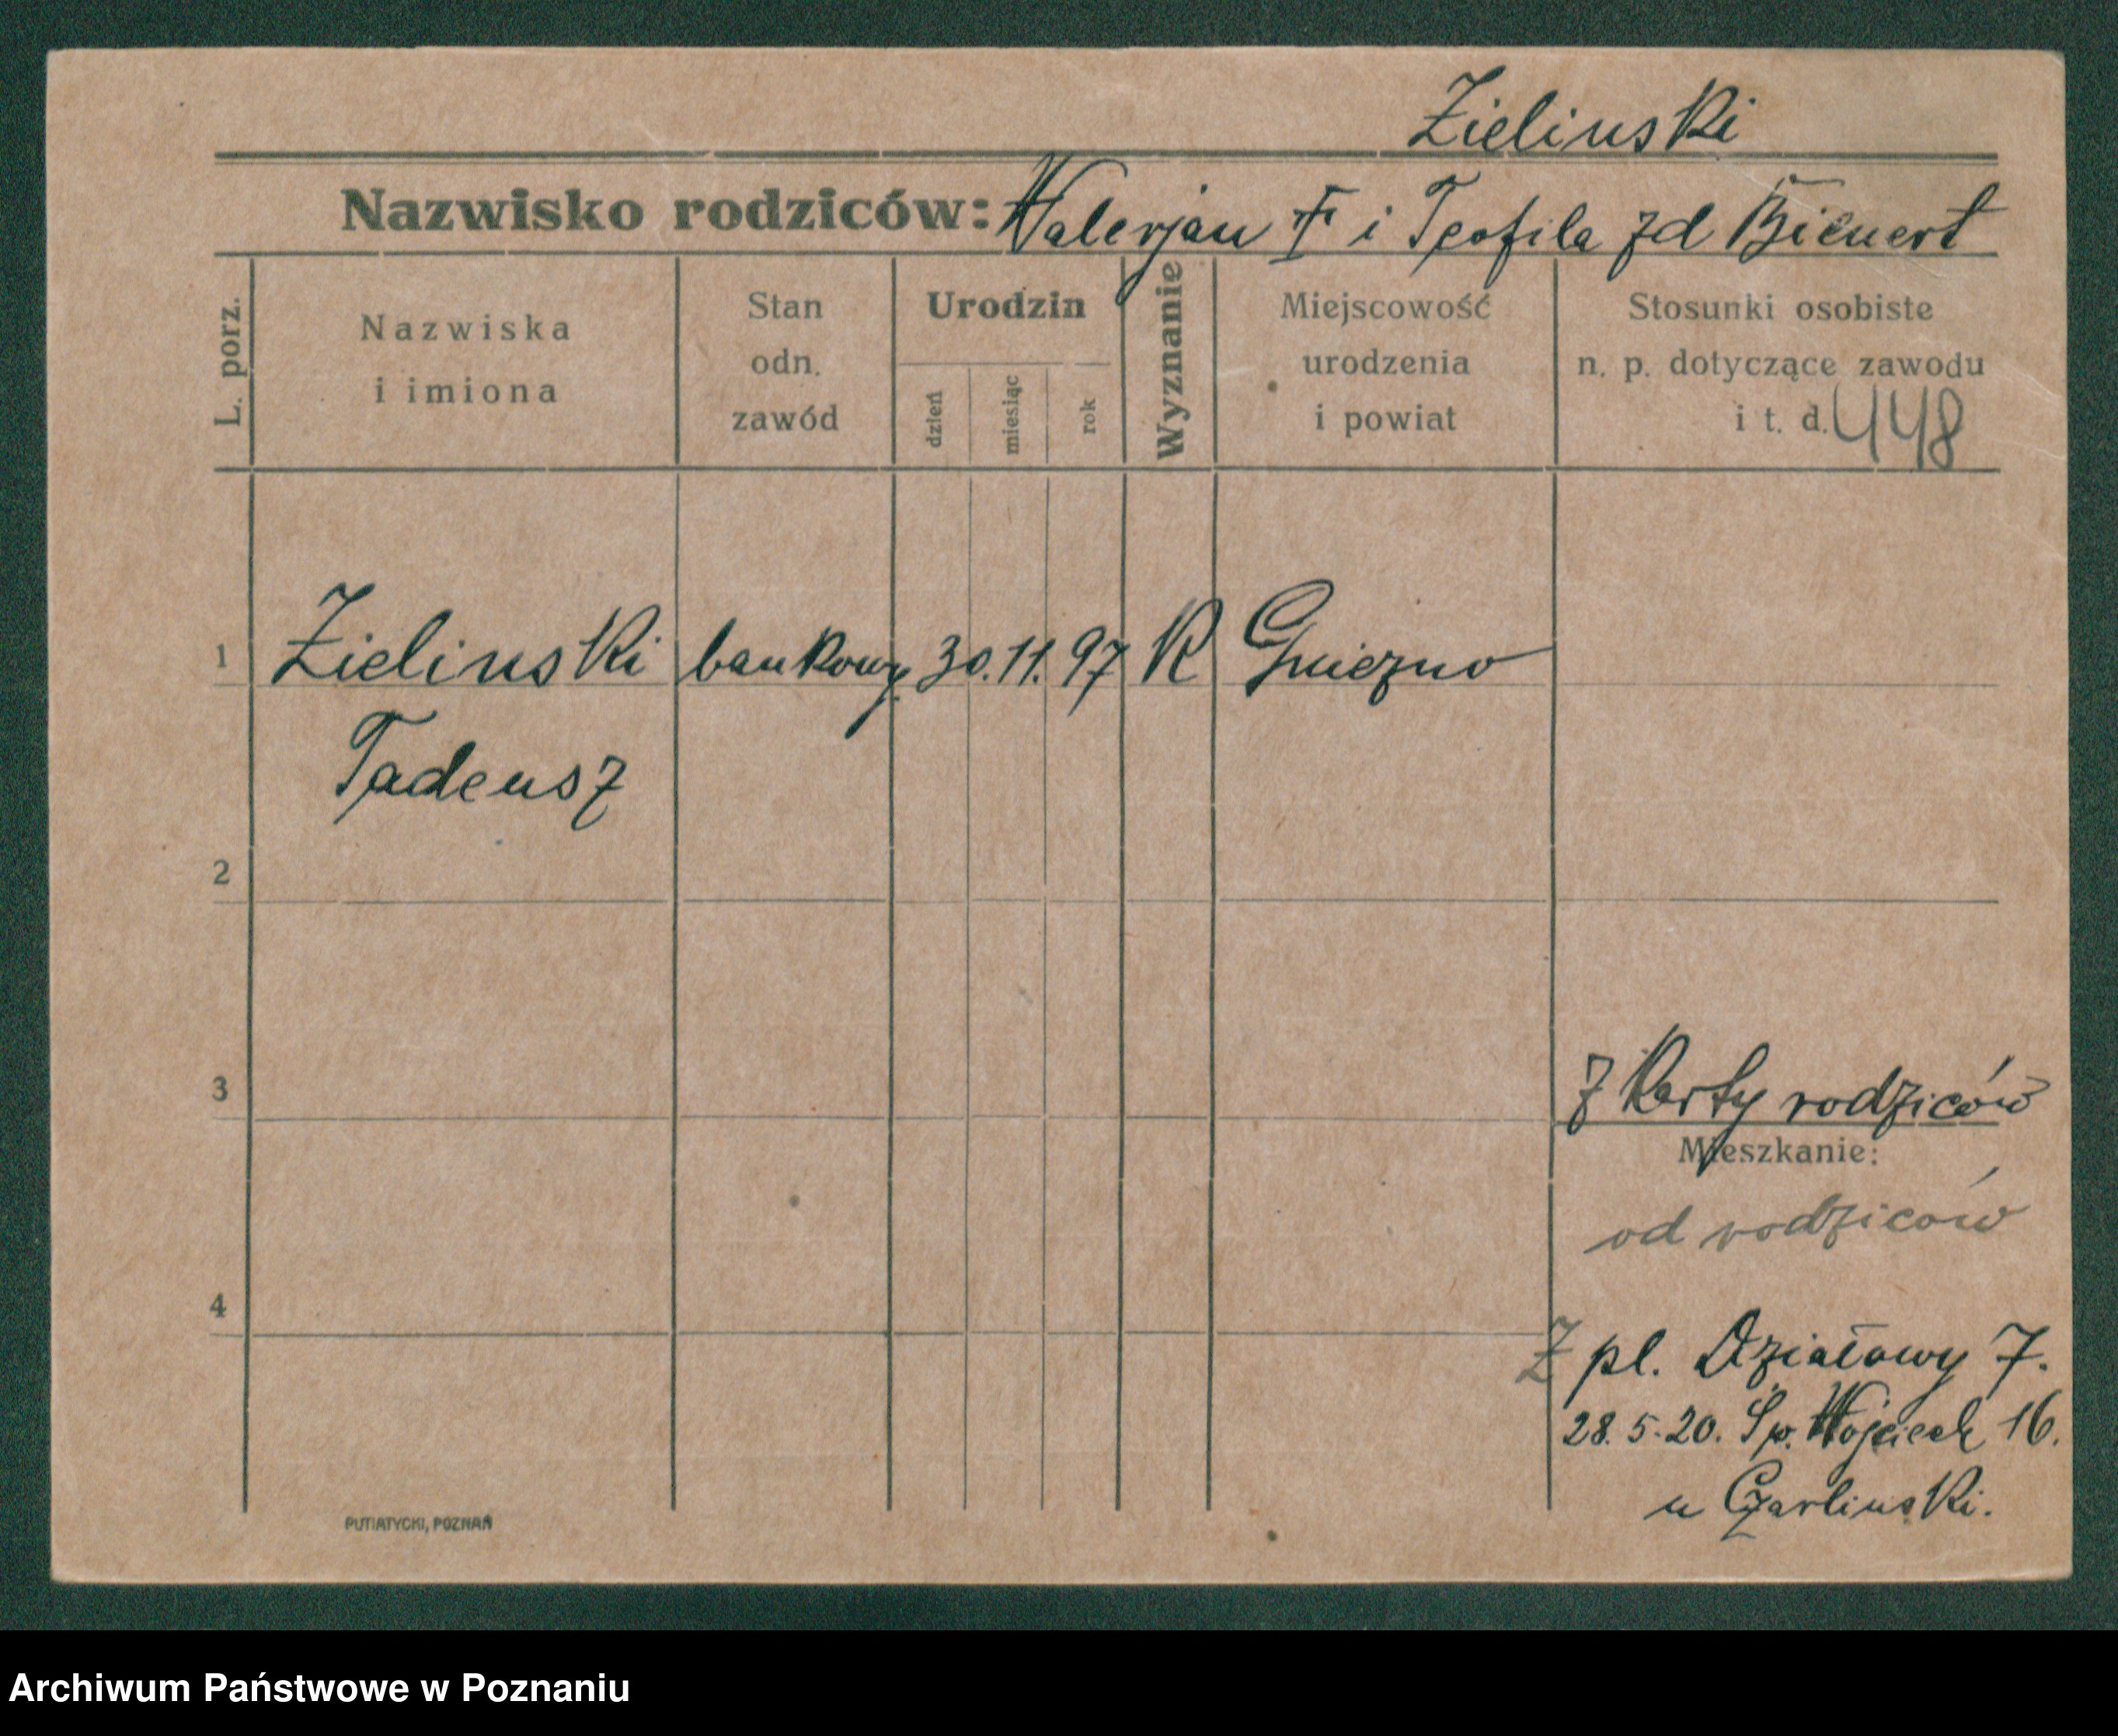 Zielinski
Nazwisko rodziców: Walerjan † i Teofila zd Bienert
L. porz.
Nazwiska
i imiona
Stan
odn.
zawód
Urodzin
dzień
miesiąc
rok
Wyznanie
Miejscowość
urodzenia
i powiat
Stosunki osobiste
n. p. dotyczące zawodu
i t. d. 448
1 Zielinski bankowy 30. 11. 97 K Gniezno
Tadeusz
2
3
Z Karty rodziców
Mieszkanie:
od rodziców
4
Z pl. Działowy 7.
28. 5. 20. Św. Wojciech 16.
u Czarlinski.
PUTIATYCKI, POZNAŃ
Archiwum Państwowe w Poznaniu